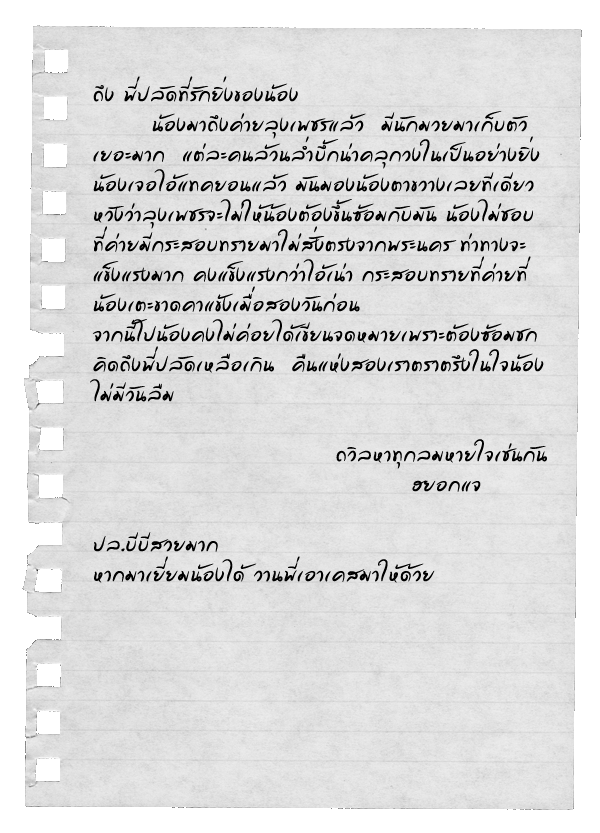 ถึง พี่ปลัดที่รักยิ่งของน้อง
น้องมาถึงค่ายลุงเพชรแล้ว มีนักมวยมาเก็บตัว
เยอะมาก แต่ละคนล้วนล่ำบึ้กน่าคลุกวงในเป็นอย่างยิ่ง
น้องเจอไอ้แทคยอนแล้ว มันมองน้องตาขวางเลยทีเดียว
หวังว่าลุงเพชรจะไม่ให้น้องต้องขึ้นซ้อมกับมัน น้องไม่ชอบ
ที่ค่ายมีกระสอบทรายมาใม่สั่งตรงจากพระนคร ท่าทางจะ
แข็งแรงมาก คงแข็งแรงกว่าไอ้เน่า กระสอบทรายที่ค่ายที่
น้องเตะขาดคาแข้งเมื่อสองวันก่อน
จากนี้ไปน้องคงไม่ค่อยได้เขียนจดหมายเพราะต้องซ้อมชก
คิดถึงพี่ปลัดเหลือเกิน คืนแห่งสองเราตราตรึงในใจน้อง
ไม่มีวันลืม
ถวิลหาทุกลมหายใจเช่นกัน
ฮยอกแจ
ปล.บีบีสวยมาก
หากมาเยี่ยมน้องได้ วานพี่เอาเคสมาให้ด้วย